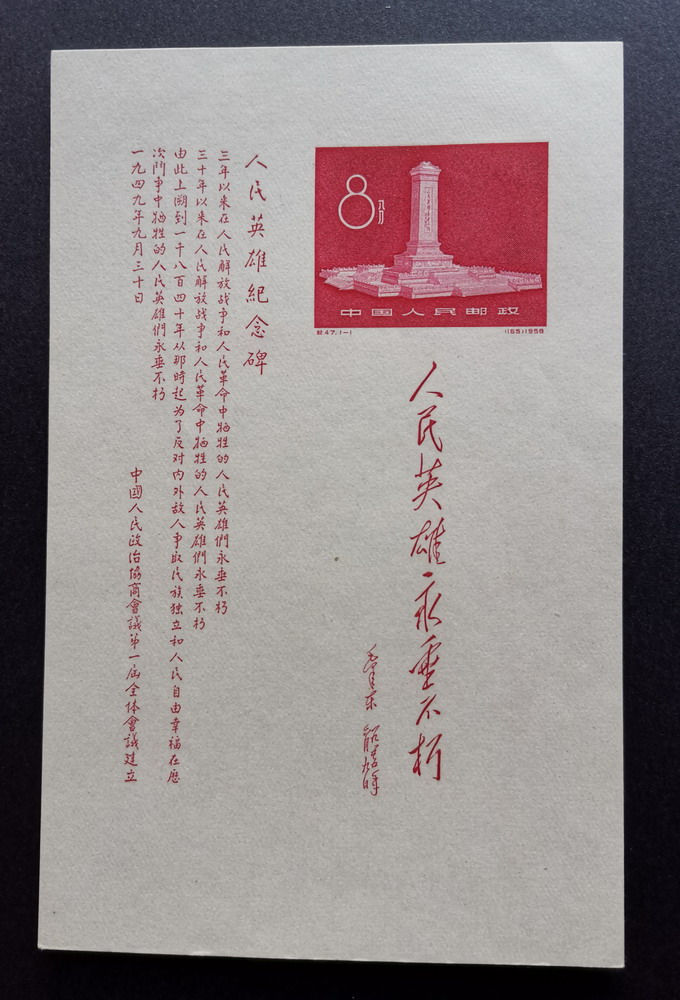 8分
中国人民邮政
紀47.1-1
(165)1958
人民英雄永垂不朽
毛澤东
人民英雄紀念碑
三年以来在人民解放战争和人民革命中牺牲的人民英雄們永垂不朽
三十年以来在人民解放战争和人民革命中牺牲的人民英雄們永垂不朽
由此上溯到一千八百四十年从那時起为了反对内外敌人争取民族独立和人民自由幸福在历
次鬥争中牺牲的人民英雄們永垂不朽
一九四九年九月三十日
中國人民政治協商會議第一届全体會議建立